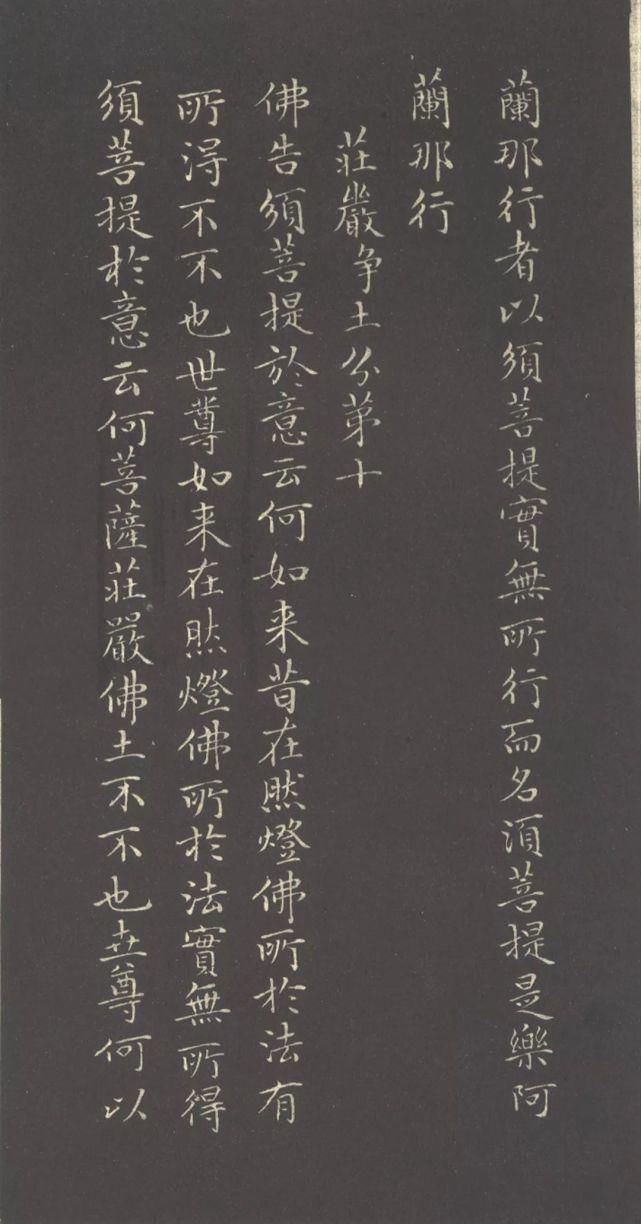 蘭那行者以須菩提實無所行而名須菩提是樂阿
蘭那行
莊嚴爭土分第十
佛告須菩提於意云何如来昔在然燈佛所於法有
所得不不也世尊如来在然燈佛所於法實無所得
須菩提於意云何菩薩莊嚴佛土不不也世尊何以